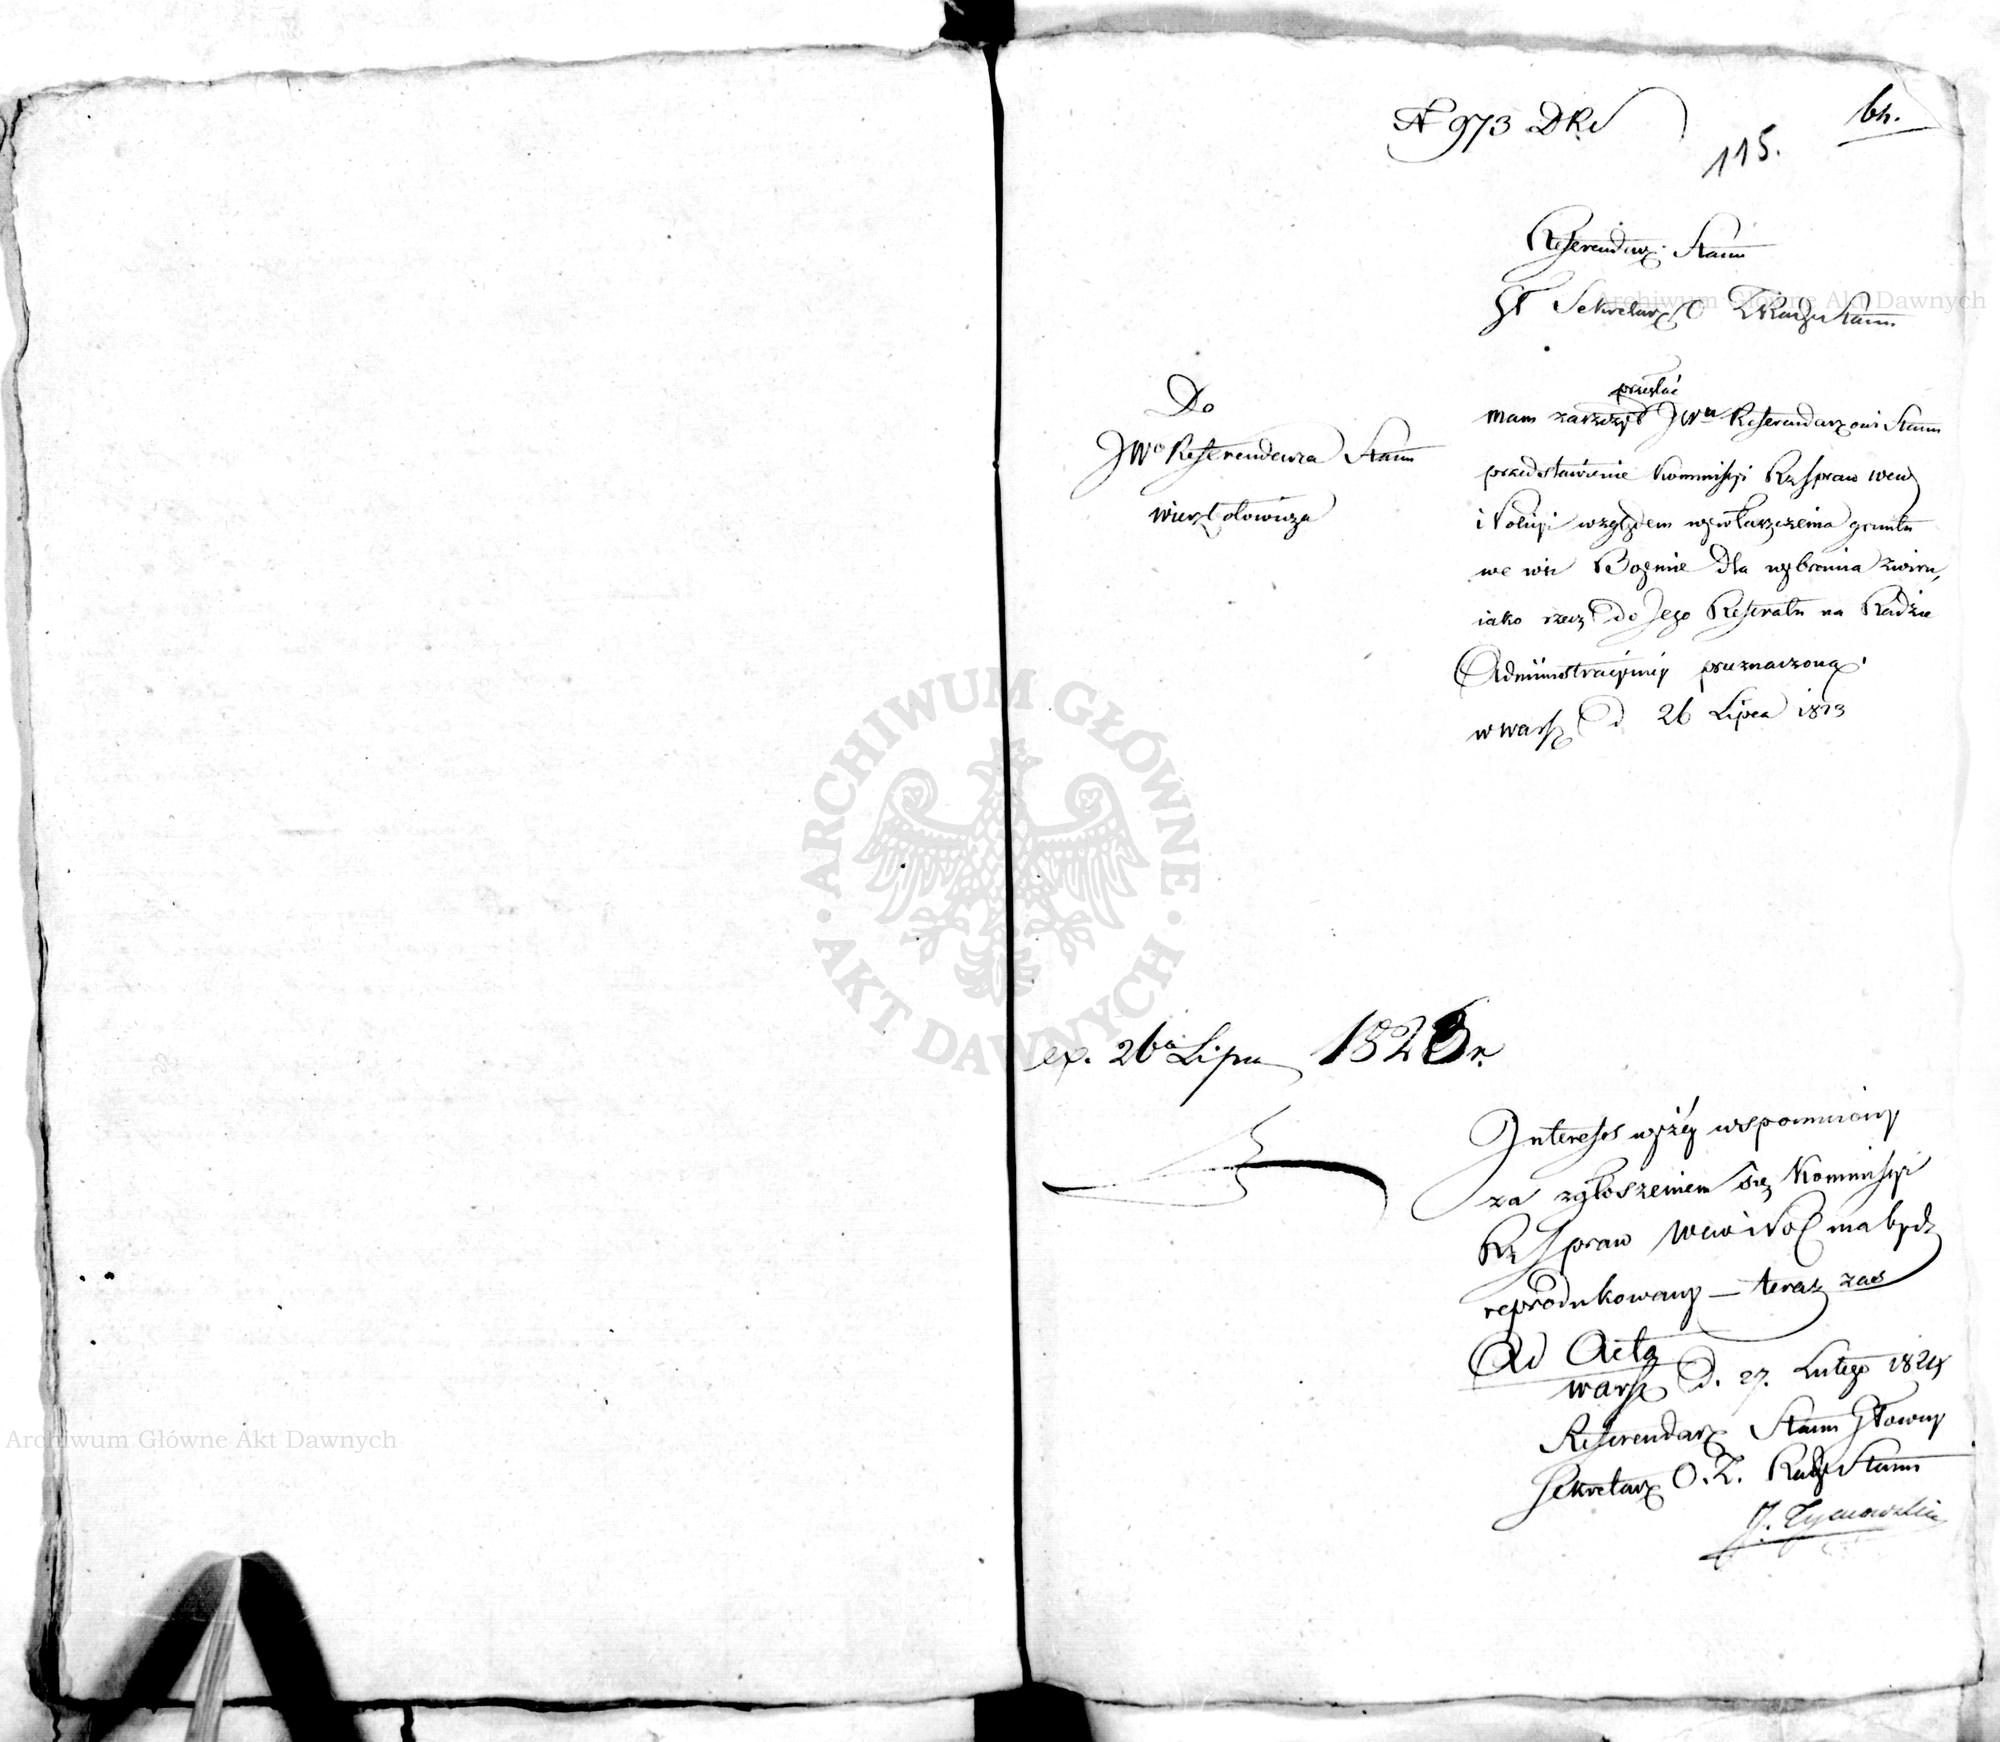 N 973 DRS
115.
Referendarz Stanu
Gł Sekretarz O Z Rady Stanu
Do
JWo Referendarza Stanu
Wierzbołowicza
przesłać
mam zaszczyt JWu Referendarzowi Stanu
przedstawienie Kommissyi Rz Spraw Wew
i Policyi względem wywłaszczenia gruntu
we wsi Bogmie dla wybrania żwiru,
iako rzecz do Jego Referatu na Radzie
Administracyiney przeznaczoną.
w Warsz d 26 Lipca 1823
ex. 26a Lipca 1823 r.
Interess wyżey wspomniony
za zgłoszeniem się Kommissyi
Rz Spraw Wew i Pol ma bydz
reprodukowany — teraz zas
Ad Acta
Warsz d. 27. Lutego 1824
Referendarz Stanu Główny
Sekretarz O. Z. Rady Stanu
J. Tymowski
ARCHIWUM GŁÓWNE AKT DAWNYCH
Archiwum Główne Akt Dawnych
Archiwum Główne Akt Dawnych